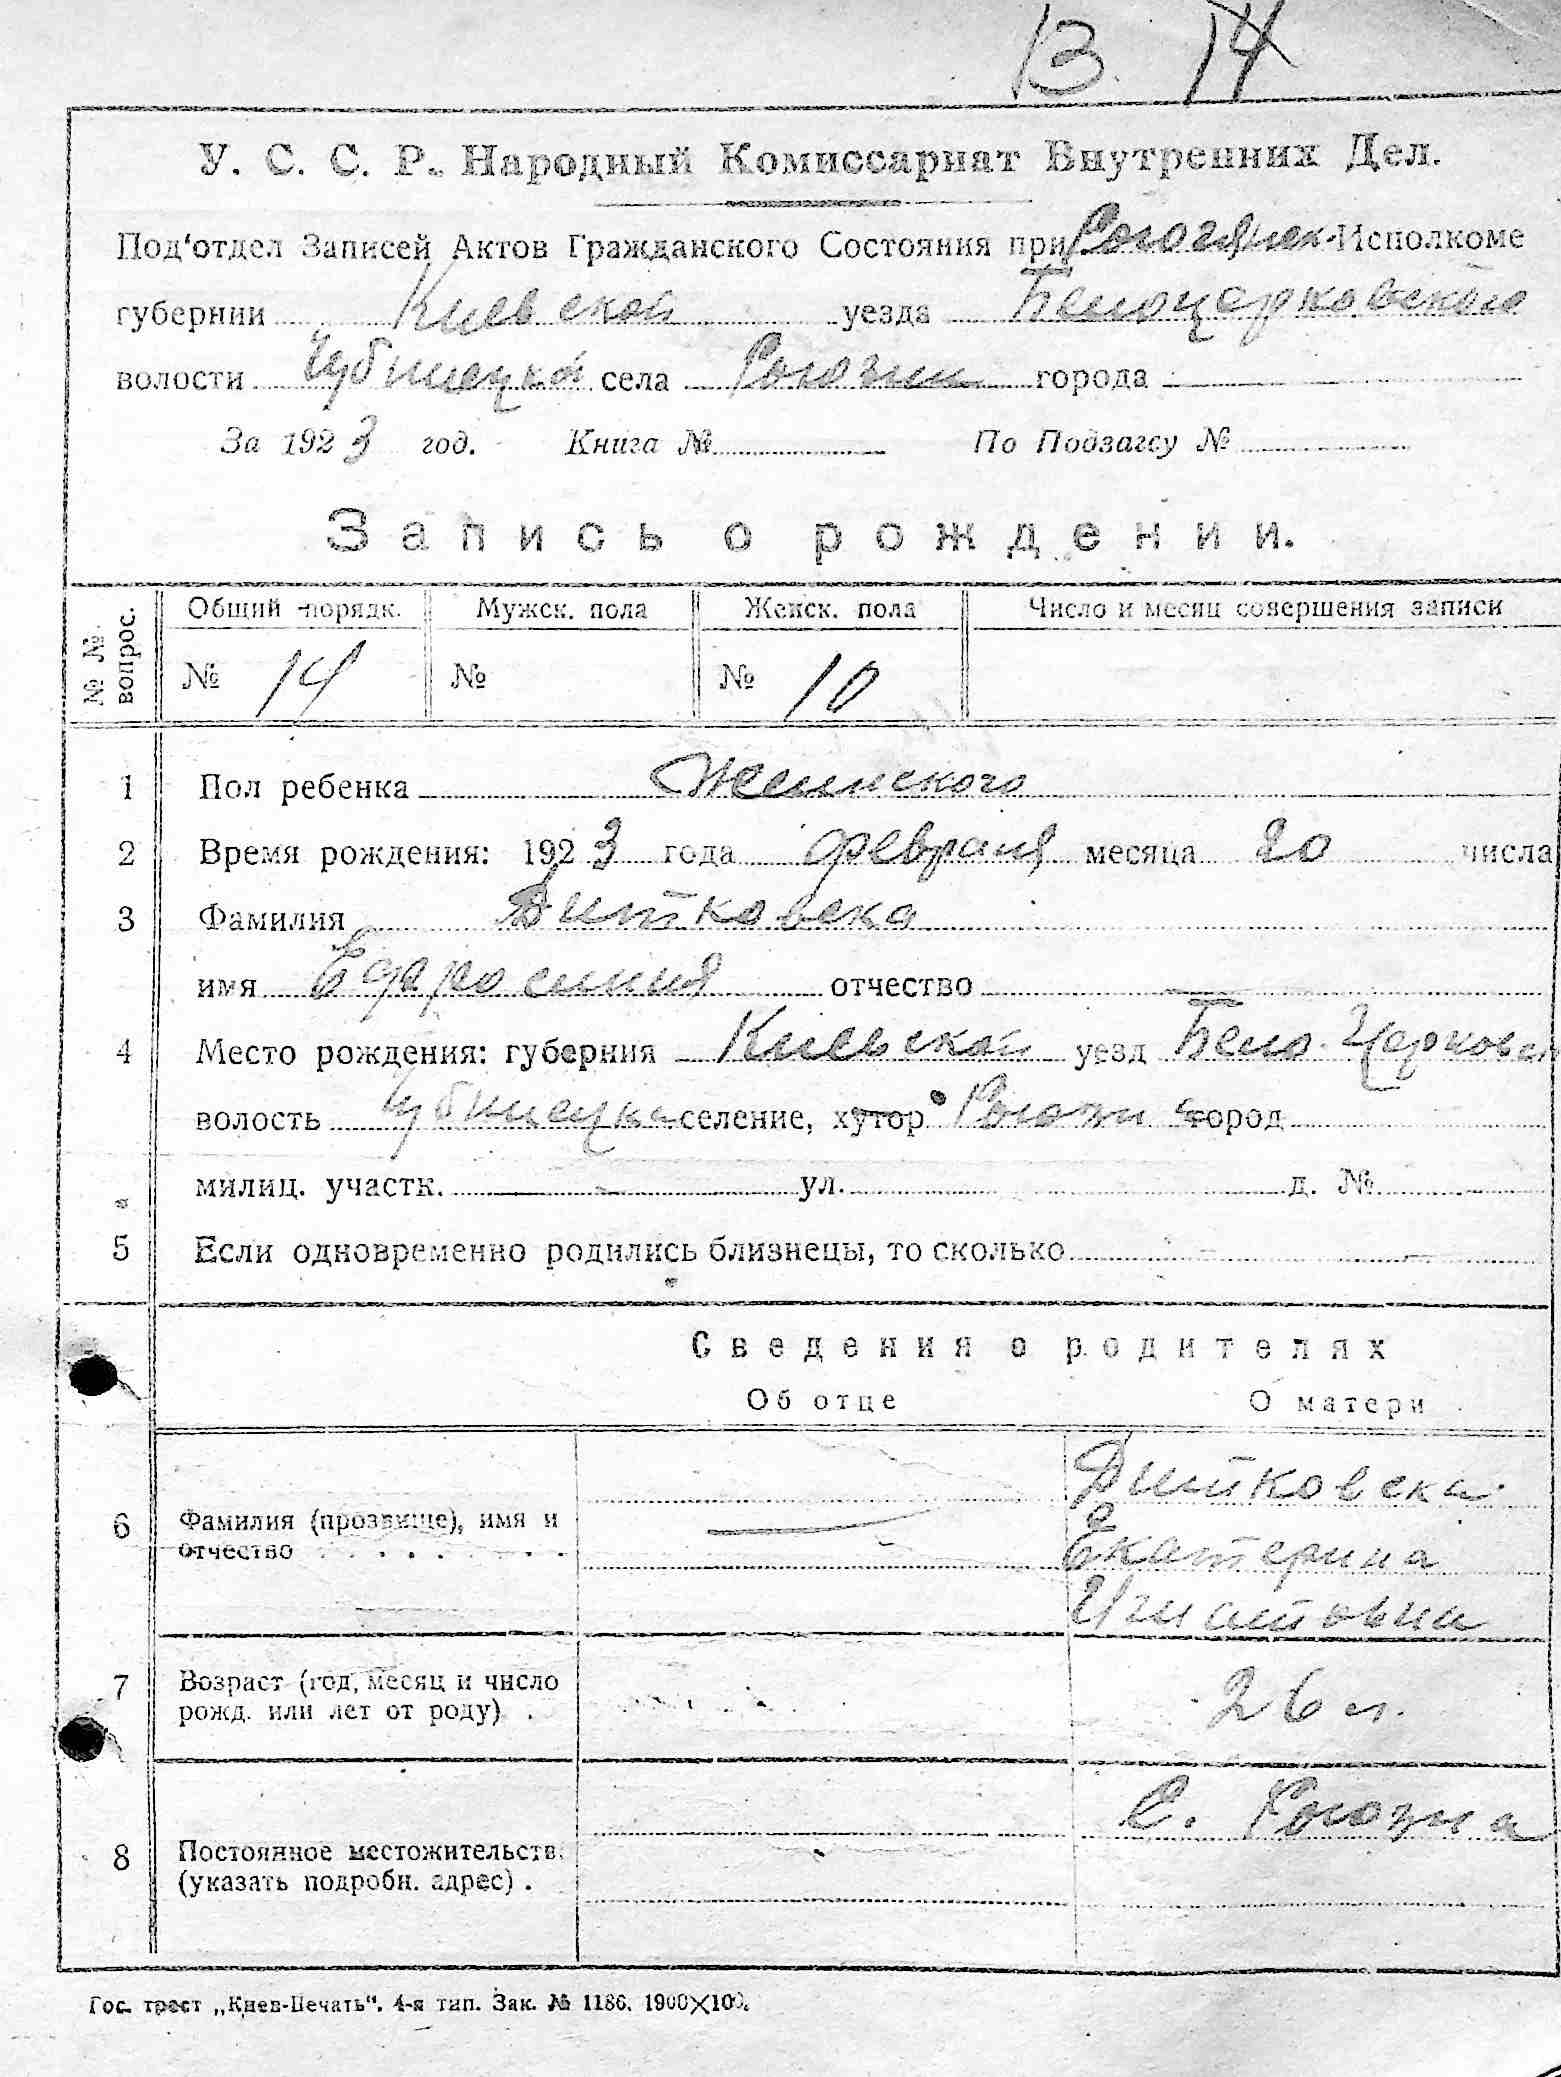 13. 14
У. С. С. Р. Народный Комиссариат Внутренних Дел.
Под'отдел Записей Актов Гражданского Состояния при Рогознянск. Исполкоме
губернии Киевской уезда Белоцерковского
волости Чубинецка села Рогозни города
За 1923 год. Книга № По Подзагсу №
Запись о рождении.
№ № вопрос. Общий порядк. Мужск. пола Женск. пола Число и месяц совершения записи
№ 14 № № 10
1 Пол ребенка Женнского
2 Время рождения: 1923 года февраля месяца 20 числа
3 Фамилия Дитковска
имя Ефросиния отчество —
4 Место рождения: губерния Киевской уезд Бело-Церковск
волость Чубинецка селение, хутор Рогозни город
милиц. участк. — ул. д. №
5 Если одновременно родились близнецы, то сколько
Сведения о родителях
Об отце О матери
6 Фамилия (прозвище), имя и отчество — Дитковска
Екатерина
Игнатовна
7 Возраст (год, месяц и число рожд. или лет от роду) 26 л.
8 Постоянное местожительств. (указать подробн. адрес) С. Рогозна
Гос. трест „Киев-Печать“. 4-я тип. Зак. № 1186. 1900×100.